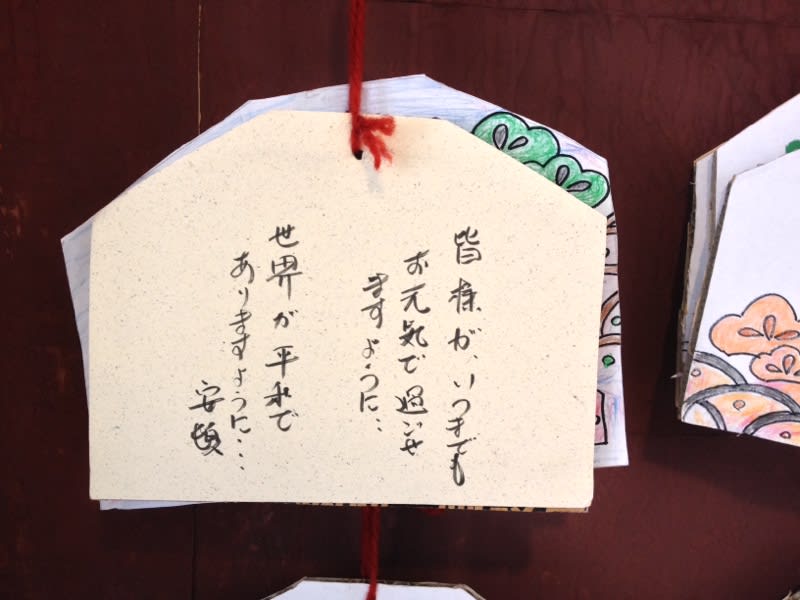 皆様が、いつまでも
お元気で過ごせ
ますように‥
世界が平和で
ありますように…